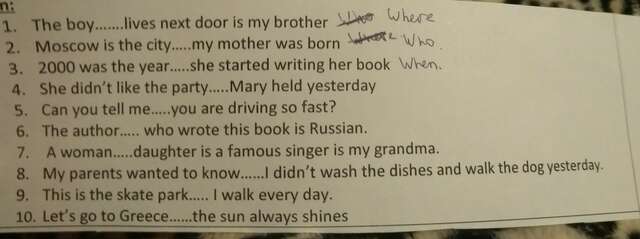 n:
1. The boy.......lives next door is my brother Who Where
2. Moscow is the city.....my mother was born Where Who.
3. 2000 was the year.....she started writing her book When.
4. She didn't like the party.....Mary held yesterday
5. Can you tell me.....you are driving so fast?
6. The author..... who wrote this book is Russian.
7. A woman.....daughter is a famous singer is my grandma.
8. My parents wanted to know......I didn't wash the dishes and walk the dog yesterday.
9. This is the skate park..... I walk every day.
10. Let's go to Greece......the sun always shines